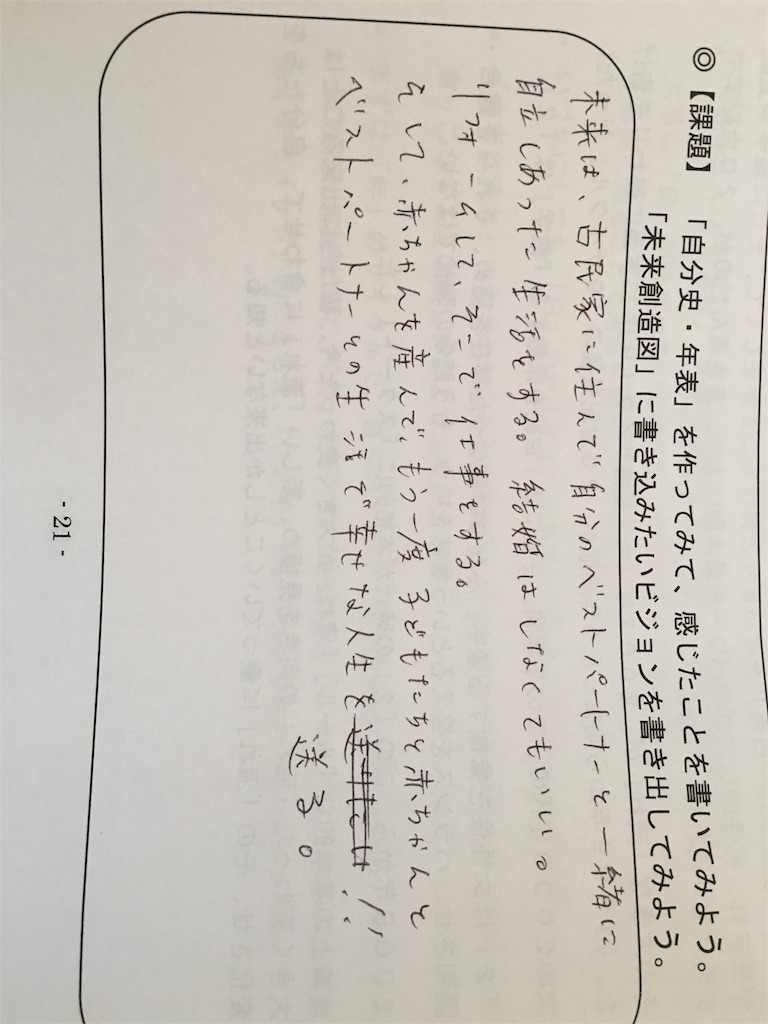 ◎【課題】　「自分史・年表」を作ってみて、感じたことを書いてみよう。
「未来創造図」に書き込みたいビジョンを書き出してみよう。
未来は、古民家に住んで自分のベストパートナーと一緒に
自立しあった生活をする。結婚はしなくてもいい。
リフォームして、そこで仕事をする。
そして、赤ちゃんを産んで、もう一度子どもたちと赤ちゃんと
ベストパートナーとの生活で幸せな人生を
!!
送る。
- 21 -